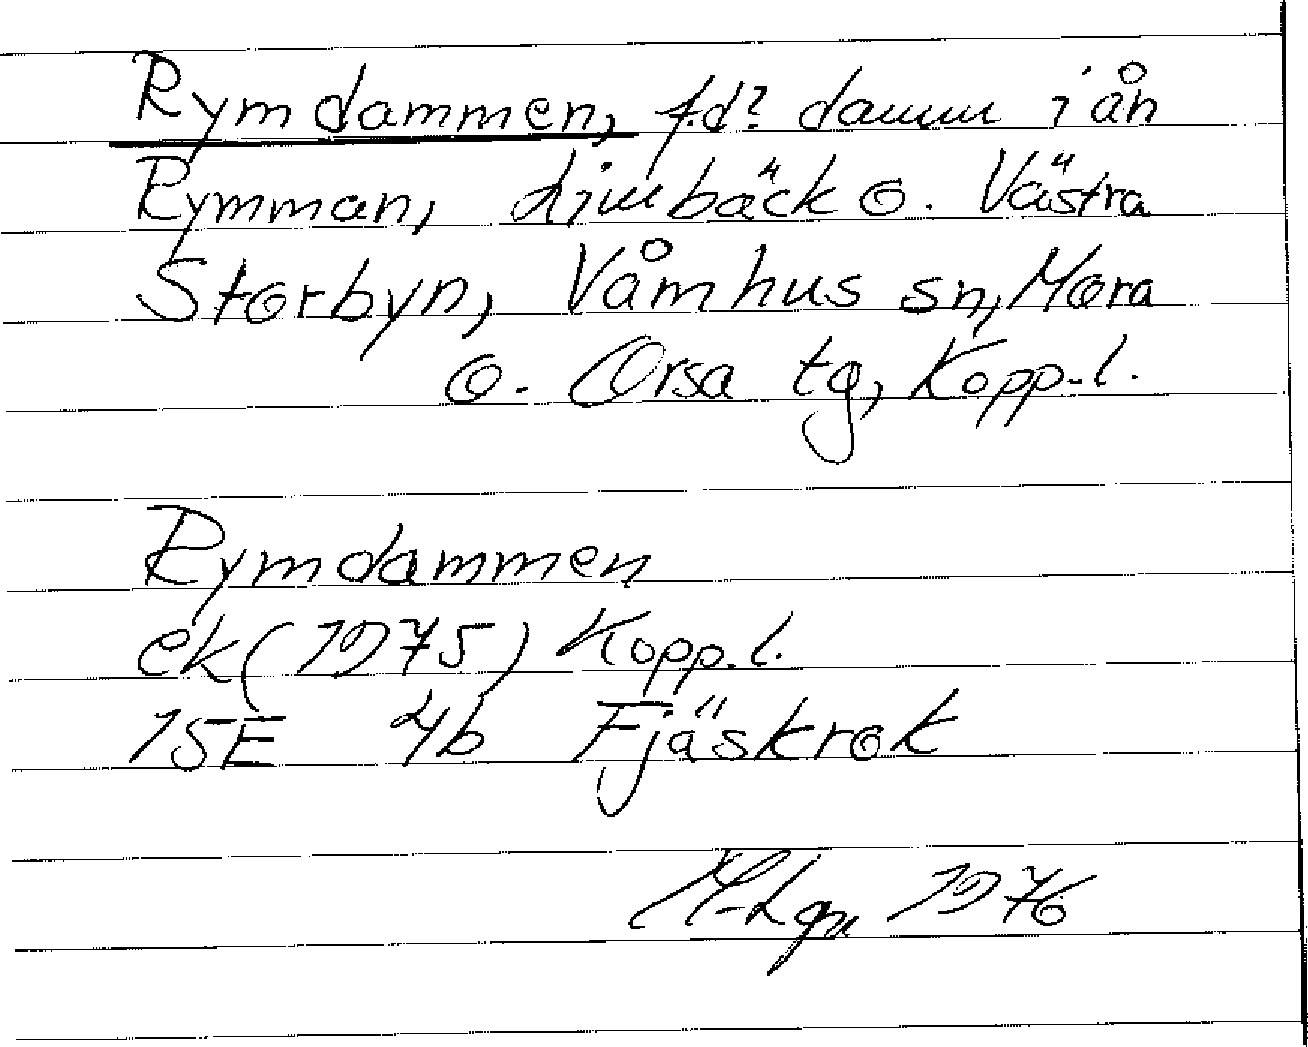 Rymdammen, f.d? damm i ån
Rymman, Limbäck o. Västra
Storbyn, Våmhus sn, Mora
o. Orsa tg, Kopp. l.
Rymdammen
ek (1975) Kopp. l.
15E 4b Fjäskrok
1976